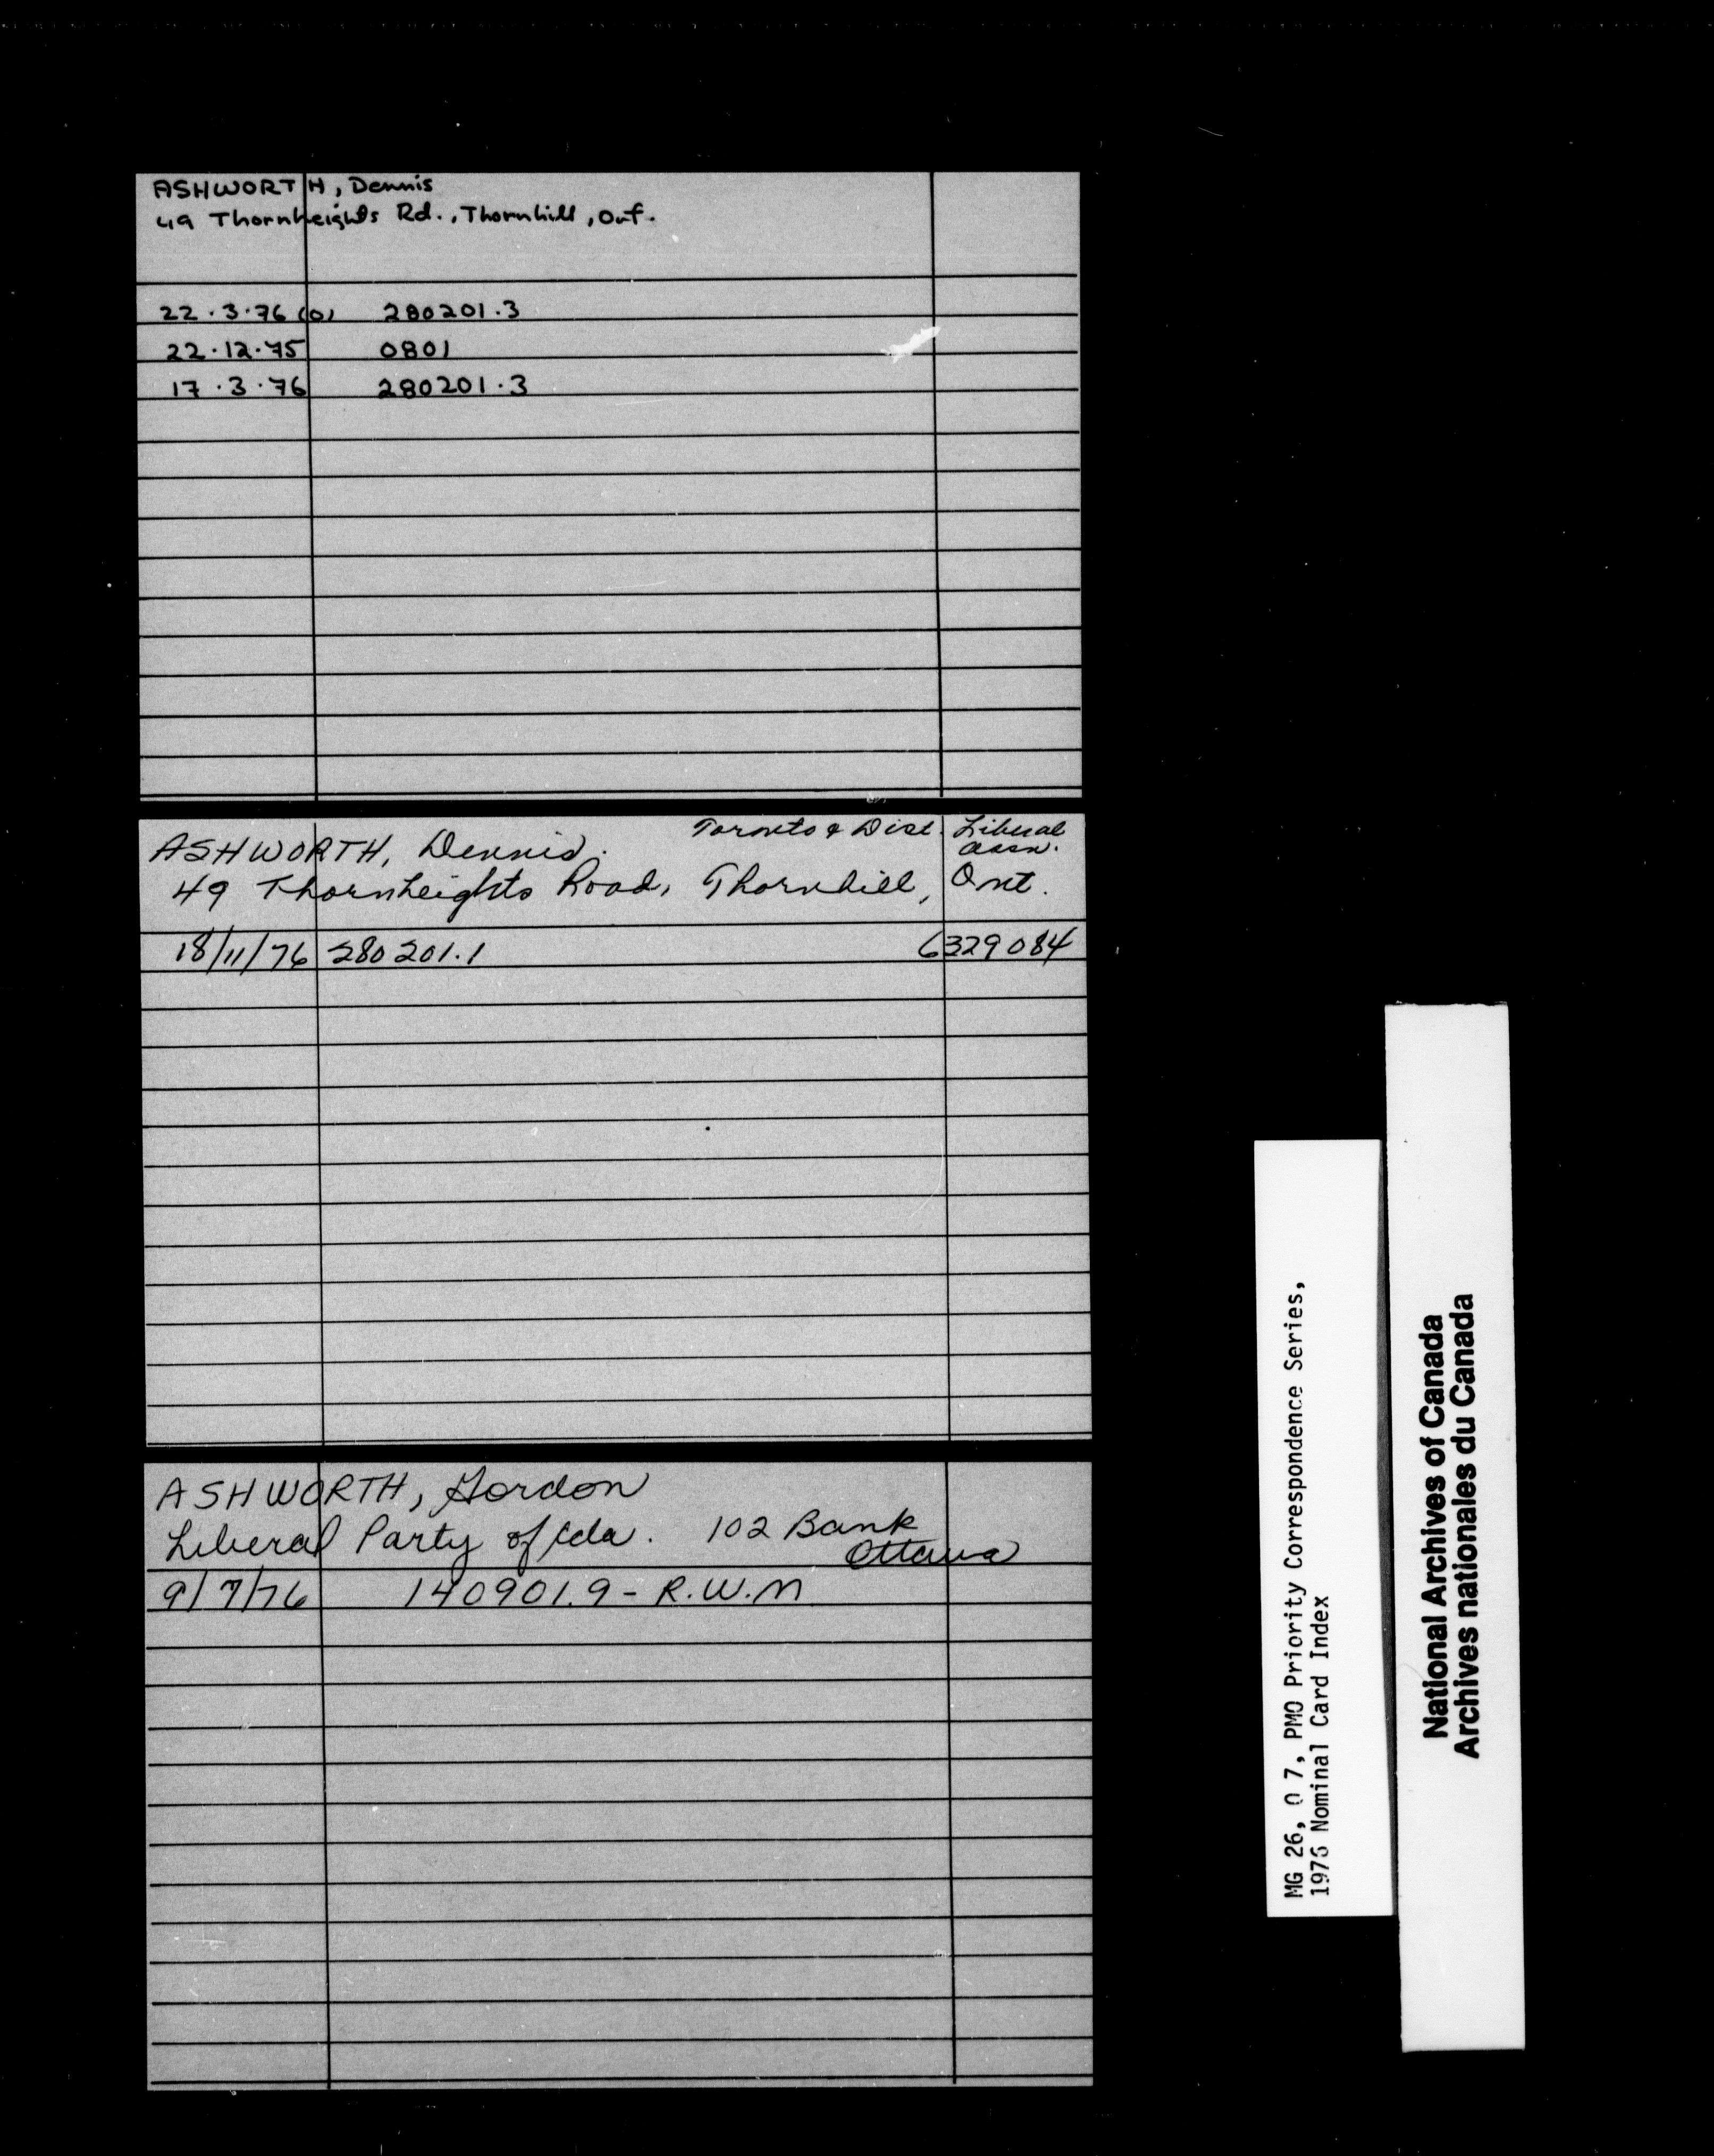 ASHWORTH, Dennis
49 Thornheights Rd., Thornhill, Ont.
22.3.76 (0) 280201.3
22.12.75 0801
17.3.76 280201.3
ASHWORTH, Dennis. Toronto & Dist. Liberal
assn.
49 Thornheights Road, Thornhill, Ont.
18/11/76 280201.1 6329084
ASHWORTH, Gordon
Liberal Party of Cda. 102 Bank
Ottawa
9/7/76 140901.9 - R.W.M
MG 26, O 7, PMO Priority Correspondence Series,
1976 Nominal Card Index
National Archives of Canada
Archives nationales du Canada